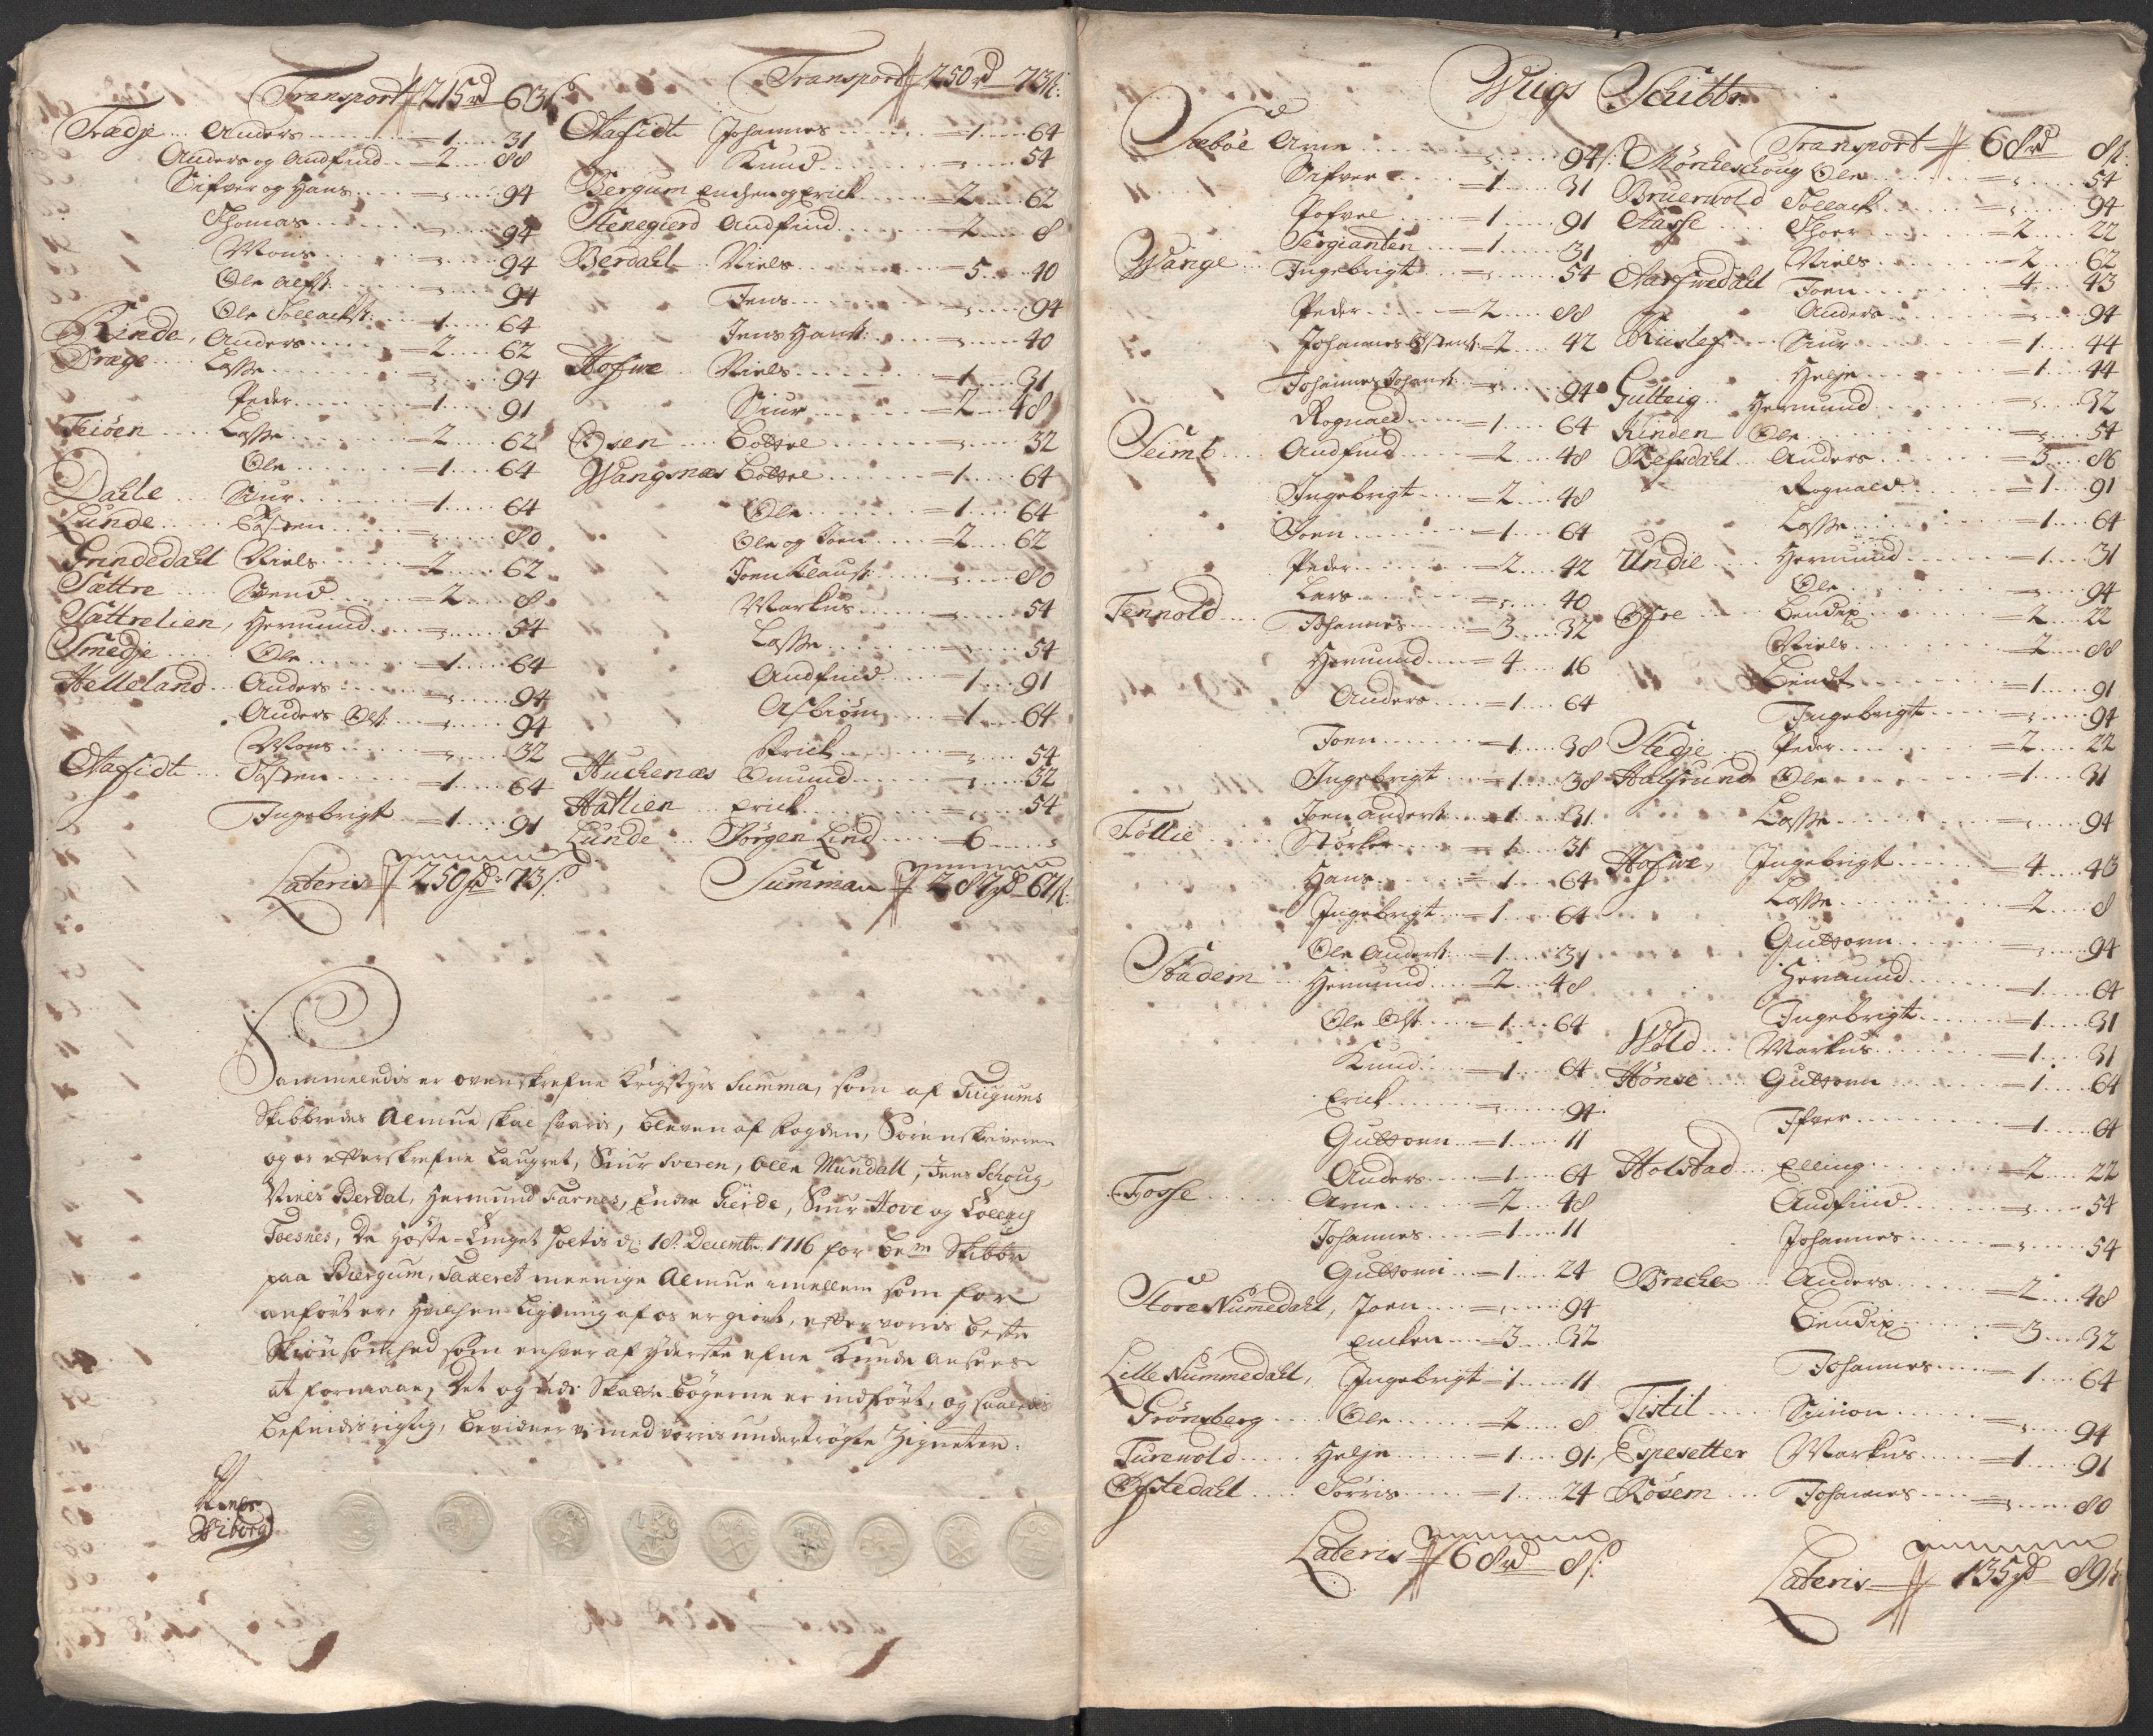 Transport 215 rd 63 s
Tredje Anders = 1 31
Anders og Andfind = 2 88
Sifver og Hans = „ 94
Thomas = „ 94
Mons = „ 94
Ole Alfs: = „ 94
Ole Tollachs: = 1 64
Rinde, Anders = 2 62
Dræge Lasse = „ 94
Peder = 1 91
Feiöen Lasse = 2 62
Ole = 1 64
Dahle Siur = 1 64
Lunde = „ 80
Grindedahl Niels = 2 62
Sættre Svend = 2 8
Sættrelien, Hermund = „ 54
Smedje Ole = 1 64
Helleland Anders = „ 94
Anders Ols: = „ 94
Mons = „ 32
Aafidt = 1 64
Ingebrigt = 1 91
Lateris 250 rd 73 s:
Transport 250 rd 73 s:
Aafidt Johannes = 1 64
Knud = „ 54
Bergum Endche og Erick = 2 62
Stenegierd Andfind = 2 8
Berdahl Niels = 5 40
Jens = „ 94
Jens Hans: = „ 40
Hofwe Niels = 1 31
Siur = 2 48
Osen Bottel = „ 32
Wangsnæs Bottel = 1 64
Ole = 1 64
Ole og Joen = 2 62
Joen Clauss: = „ 80
Markus = „ 54
Lasse = „ 54
Andfind = 1 91
Asbiörn = 1 64
Erick = „ 54
Huchenæs Omund = „ 32
Hatlien Erick = „ 54
Lunde Jörgen Lind = 6 „
Summan 287 rd 67 s:
Sammeledis er ovenskrefne Krigstyrs Summa, som af Tiugums
Skibbredes Almue skal svaris, bleven af Fogden, Sorenskriveren
og os efterskrefne Laugret, Siur Sveren, Olle Mundall, Jens Schoug,
Niels Berdal, Hermund Farnes, Endre Gierde, Siur Hove og Tollach
Foesnes, Da Höste-Tinget holtis d: 18 Decembr: 1716 for bem Skibbr
paa Biergum, Taxeret meenige Almue imellem som for
anfört er, Hvilchen Ligning af os er giort, efter vorris beste
Skiönsomhed som enhver af yderste efne Kunde ansees
at formaae, Det og udi Skatte bögerne er indfört, og saaledis
befindis rigtig, bevidner vi med vorris undertrögte Zigneter.
Niels
Wiborg
Wiigs Skibbr
Sæböe Arne = „ 94 s:
Sifver = 1 31
Pofvel = 1 91
Sergianten = 1 31
Wange Ingebrigt = „ 54
Peder = 2 88
Johannes Östens: = 2 42
Johannes Johans: = „ 94
Rognald = 1 64
Seimb Andfind = 2 48
Ingebrigt = 2 48
Joen = 1 64
Peder = 2 42
Lars = „ 40
Tennold Johannes = 3 32
Hermund = 4 16
Anders = 1 64
Joen = 1 38
Ingebrigt = 1 38
Joen Anders: = 1 31
Föllie Störker = 1 31
Hans = 1 64
Ingebrigt = 1 64
Ole Anders: = 1 31
Stadem Hermund = 2 48
Ole Ols: = 1 64
Knud = 1 64
Erick = „ 94
Guttorm = 1 11
Anders = 1 64
Fosse Arne = 2 48
Johannes = 1 11
Guttorm = 1 24
Store Nummedahl, Joen = „ 94
Encken = 3 32
Lille Nummedahl, Ingebrigt = 1 11
Grönsberg Ole = 2 8
Turewold Helje = 1 91
Ofstedahl Torris = 1 24
Lateris 68 rd 8 s:
Transport 68 rd 8 s:
Mörcheschoug Ole = „ 54
Bruerwold Tollach = „ 94
Aasse Thoer = 2 22
Niels = 2 62
Aarswedahl Joen = 4 43
Anders = „ 94
Riislef Siur = 1 44
Helje = 1 44
Gulteig Hermund = „ 32
Kinden Ole = „ 54
Refsdahl Anders = 3 86
Rognald = 1 91
Lasse = 1 64
Undie Hermund = 1 31
Ole = „ 94
Öfre Bendix = 2 22
Niels = 2 88
Bendt = 1 91
Ingebrigt = „ 94
Stedje Peder = 2 22
Halsrund Ole = 1 31
Lasse = „ 94
Hofwe, Ingebrigt = 4 43
Lasse = 2 8
Guttorm = „ 94
Hermund = 1 64
Ingebrigt = 1 31
Wold Markus = 1 31
Hönse Guttorm = 1 64
Ifver = 1 64
Holstad Elling = 2 22
Andfind = „ 54
Johannes = „ 54
Breche Anders = 2 48
Bendix = 3 32
Johannes = 1 64
Tistil Simon = „ 94
Espesetter Markus = 1 91
Rösem Johannes = „ 80
Lateris 135 rd 89 s